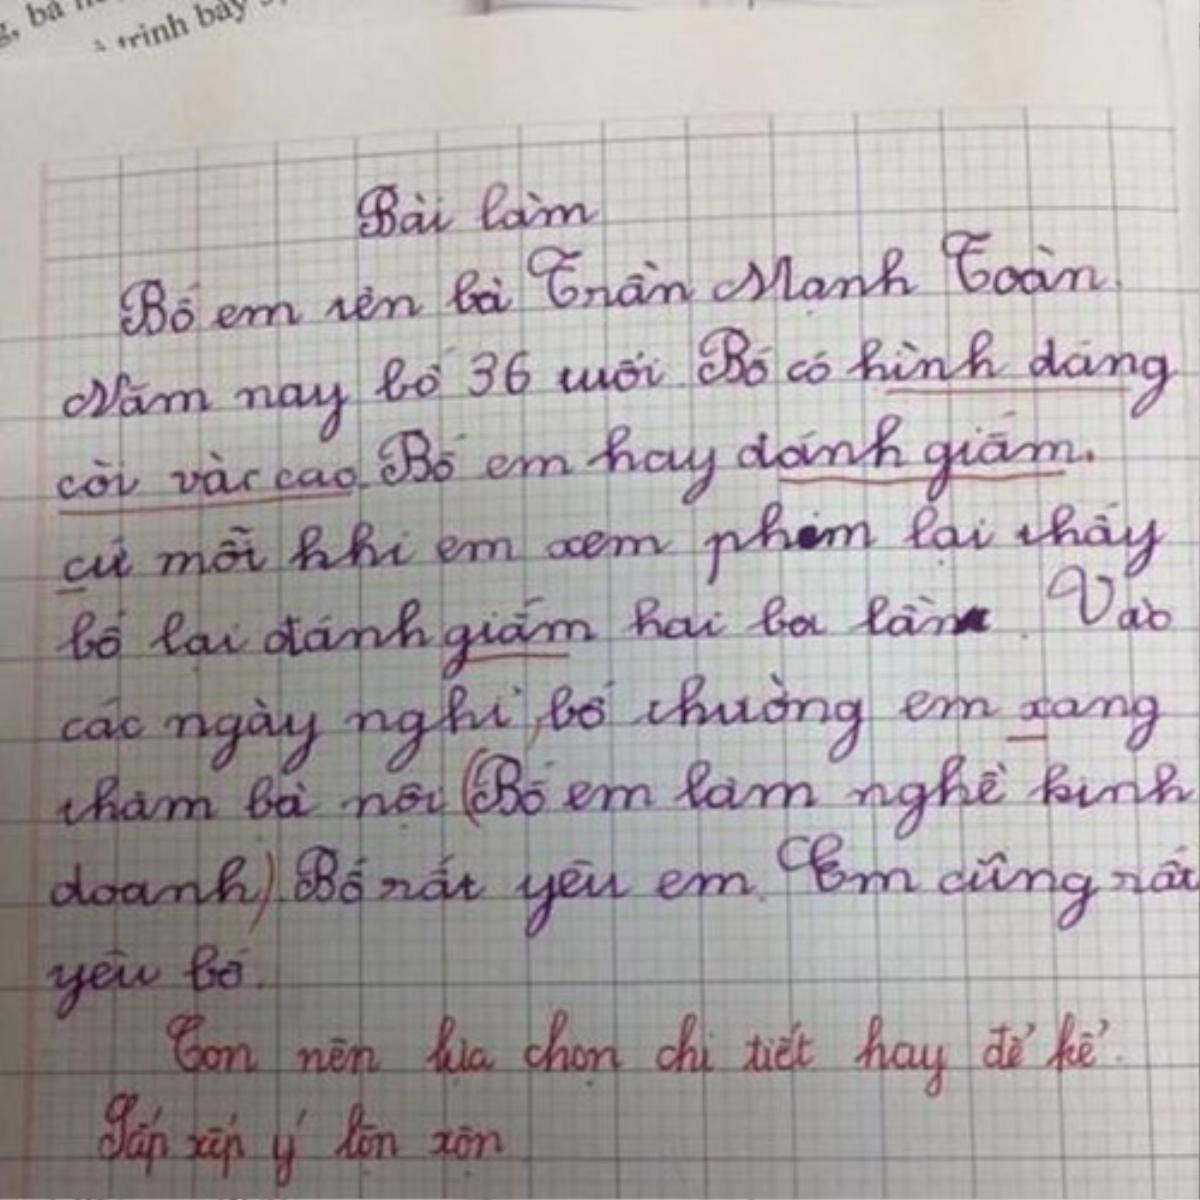 trình bày
Bài làm
Bố em tên là Trần Mạnh Toàn.
Năm nay bố 36 tuổi Bố có hình dáng
còi vàc cao. Bố em hay dánh giấm.
cứ mỗi khi em xem phim lại thấy
bố lại đánh giấm hai ba lần. Vào
các ngày nghỉ, bố thường em xang
thăm bà nội (Bố em làm nghề kinh
doanh) Bố rất yêu em. Em cũng rất
yêu bố.
Con nên lựa chọn chi tiết hay để kể.
Sắp xếp ý lộn xộn